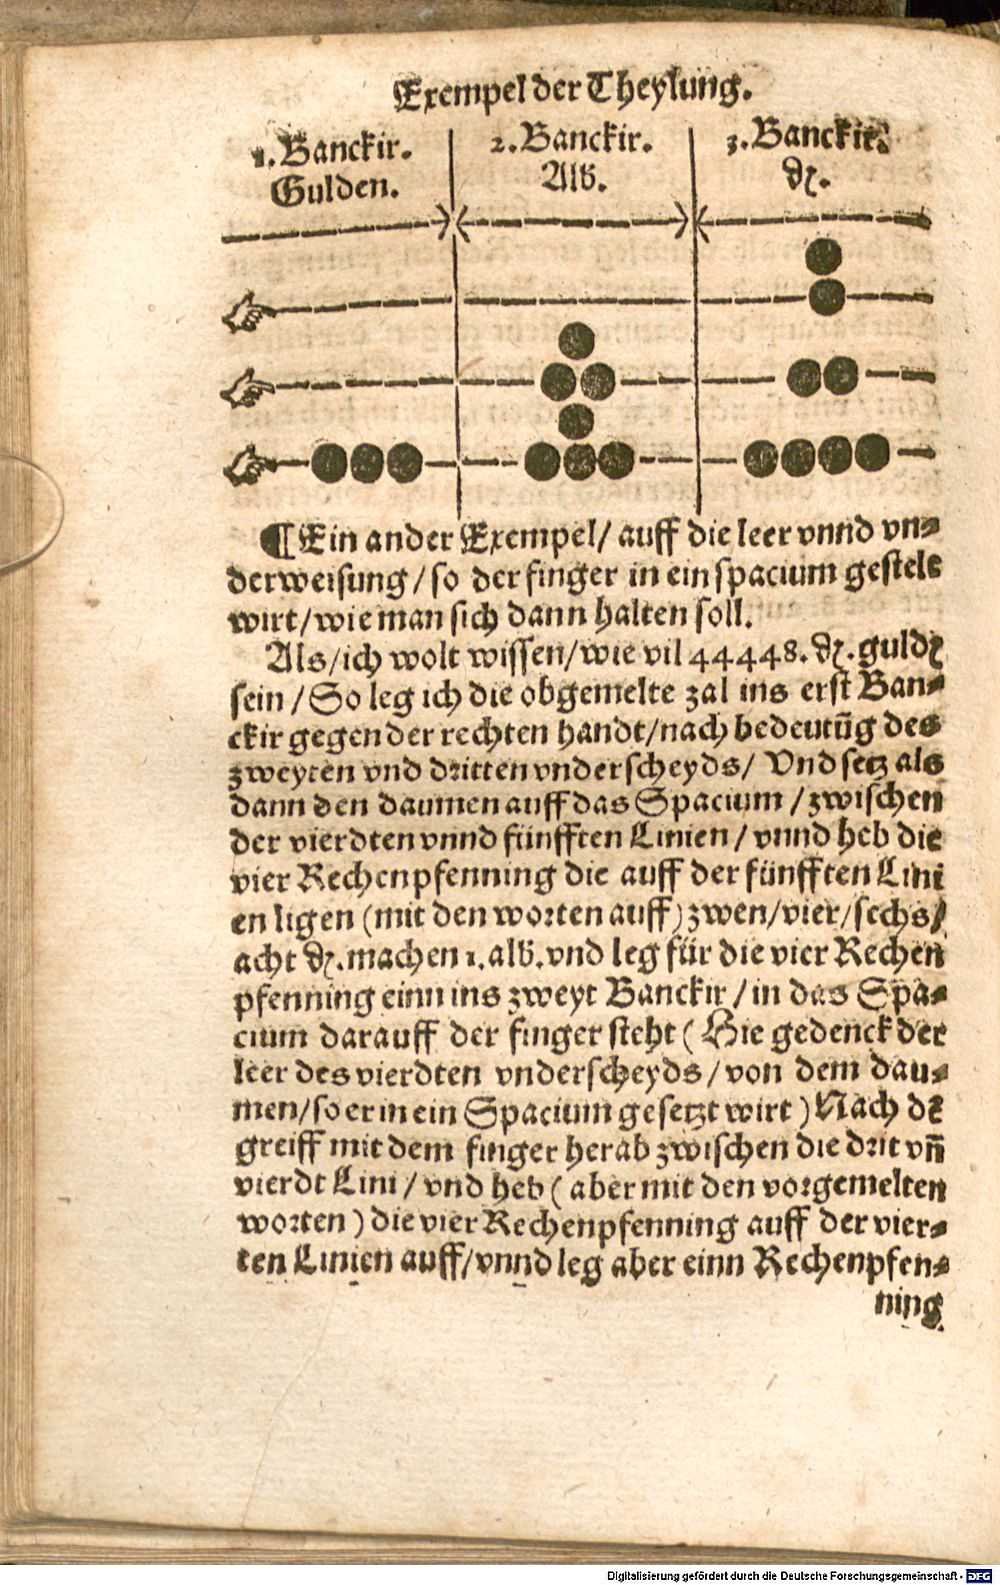 Exempel der Theylung.
1. Banckir.
Gulden.
2. Banckir.
Alb.
3. Banckir.
₰.
¶ Ein ander Exempel/ auff die leer vnnd vn-
derweisung/ so der finger in ein spacium gestelt
wirt/ wie man sich dann halten soll.
Als/ ich wolt wissen/ wie vil 44448. ₰. guldē
sein/ So leg ich die obgemelte zal ins erst Ban-
ckir gegen der rechten handt/ nach bedeutūg des
zweyten vnd dritten vnderscheyds/ Vnd setz als
dann den daumen auff das Spacium/ zwischen
der vierdten vnnd fünfften Linien/ vnnd heb die
vier Rechenpfenning die auff der fünfften Lini
en ligen (mit den worten auff) zwen/ vier/ sechs/
acht ₰. machen 1. alb. vnd leg für die vier Rechen
pfenning einn ins zweyt Banckir/ in das Spa-
cium darauff der finger steht (Hie gedenck der
leer des vierdten vnderscheyds/ von dem dau-
men/ so er in ein Spacium gesetzt wirt) Nach dē
greiff mit dem finger herab zwischen die drit vñ
vierdt Lini/ vnd heb (aber mit den vorgemelten
worten) die vier Rechenpfenning auff der vier-
ten Linien auff/ vnnd leg aber einn Rechenpfen-
ning
Digitalisierung gefördert durch die Deutsche Forschungsgemeinschaft - DFG